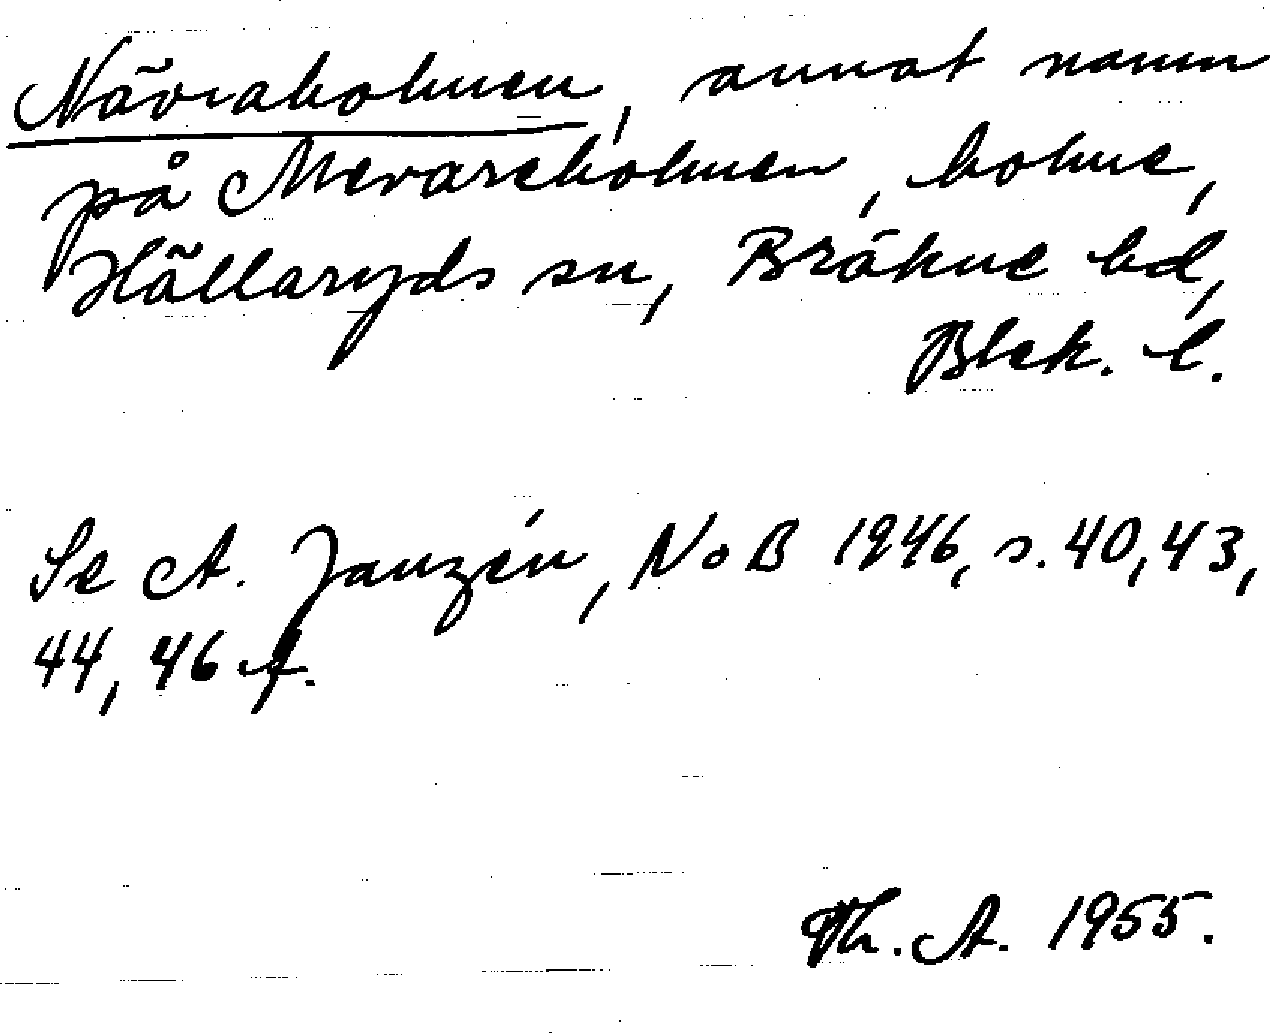 Nävraholmen, annat namn
på Mevareholmen, holme,
Hällaryds sn, Bräkne hd,
Blek. l.
Se A. Janzén, NoB 1946, s. 40, 43,
44, 46 f.
Th. A. 1955.